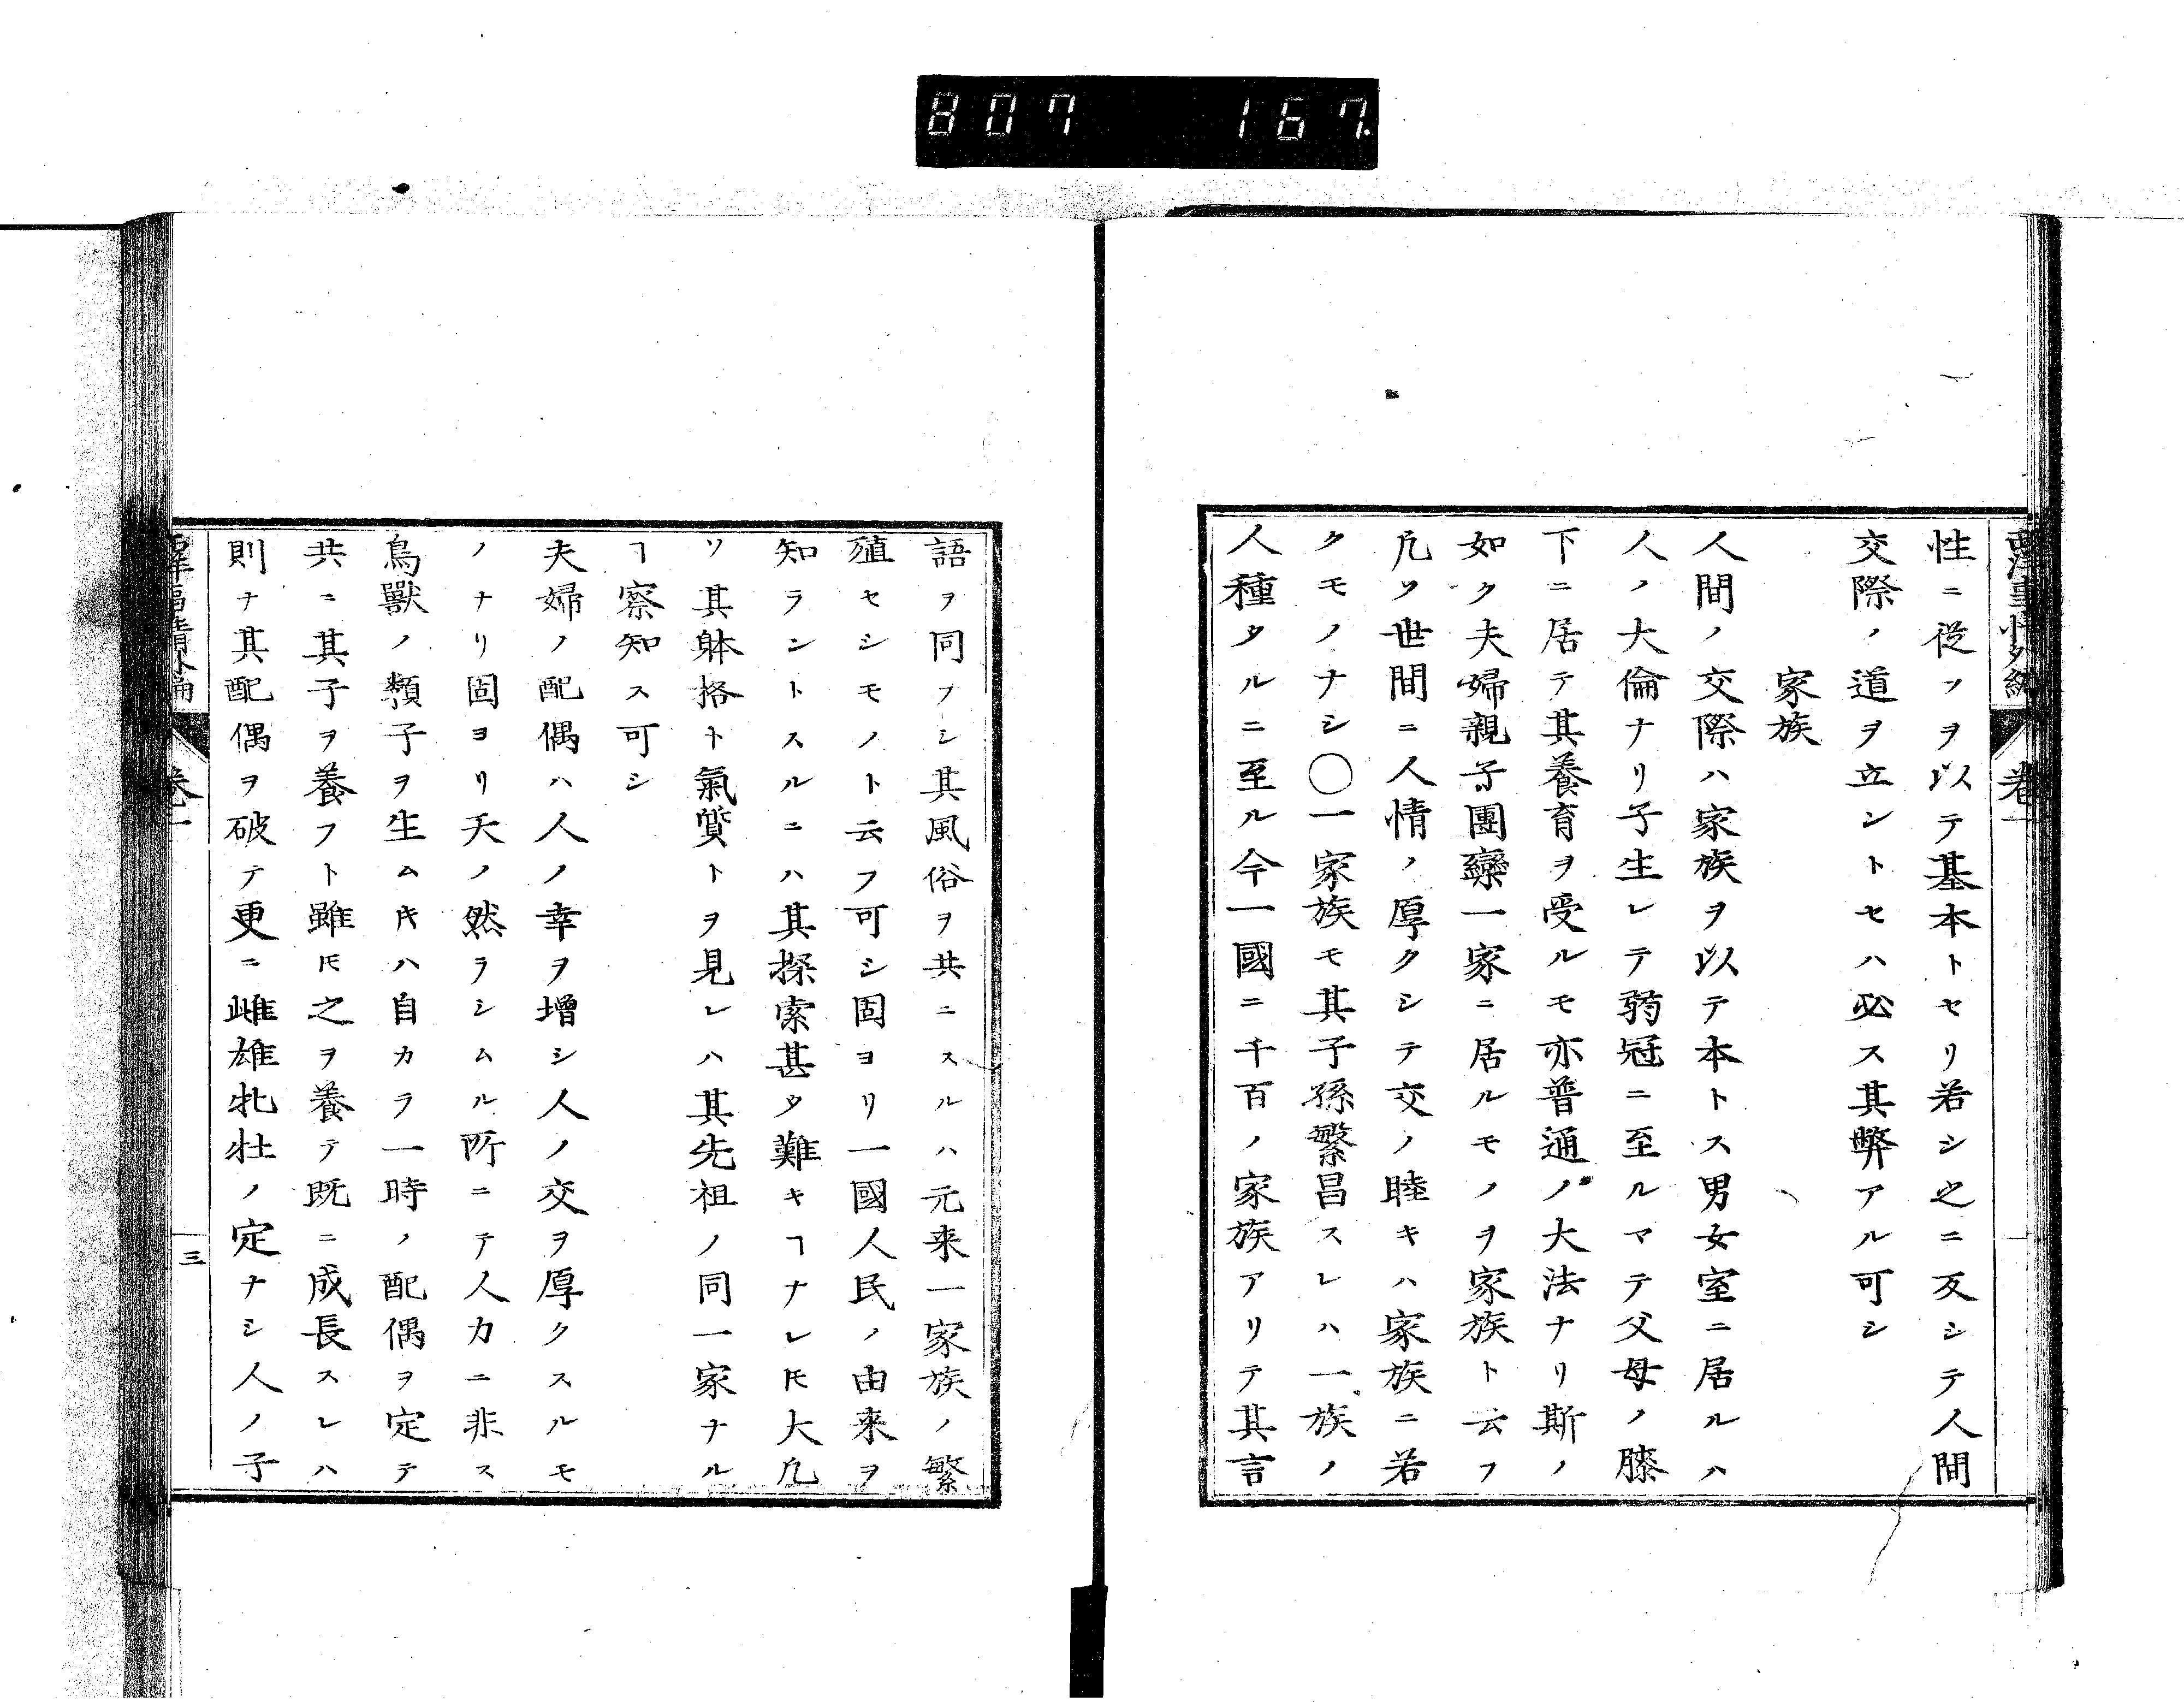 807 167
西洋事情外編 卷一
性ニ從フヲ以テ基本トセリ若シ之ニ反シテ人間
交際ノ道ヲ立ントセハ必ス其弊アル可シ
家族
人間ノ交際ハ家族ヲ以テ本トス男女室ニ居ルハ
人ノ大倫ナリ子生レテ弱冠ニ至ルマテ父母ノ膝
下ニ居テ其養育ヲ受ルモ亦普通ノ大法ナリ斯ノ
如ク夫婦親子團欒一家ニ居ルモノヲ家族ト云フ
凡ソ世間ニ人情ノ厚クシテ交ノ睦キハ家族ニ若
クモノナシ〇一家族モ其子孫繁昌スレハ一族ノ
人種タルニ至ル今一國ニ千百ノ家族アリテ其言
語ヲ同フシ其風俗ヲ共ニスルハ元来一家族ノ繁
殖セシモノト云フ可シ固ヨリ一國人民ノ由来ヲ
知ラントスルニハ其探索甚タ難キヿナレ𪜈大凡
ソ其躰格ト氣質トヲ見レハ其先祖ノ同一家ナル
ヿ察知ス可シ
夫婦ノ配偶ハ人ノ幸ヲ增シ人ノ交ヲ厚クスルモ
ノナリ固ヨリ天ノ然ラシムル所ニテ人力ニ非ス
鳥獸ノ類子ヲ生ムキハ自カラ一時ノ配偶ヲ定テ
共ニ其子ヲ養フト雖𪜈之ヲ養テ既ニ成長スレハ
則ナ其配偶ヲ破テ更ニ雌雄牝牡ノ定ナシ人ノ子
西洋事情外編 卷一 三